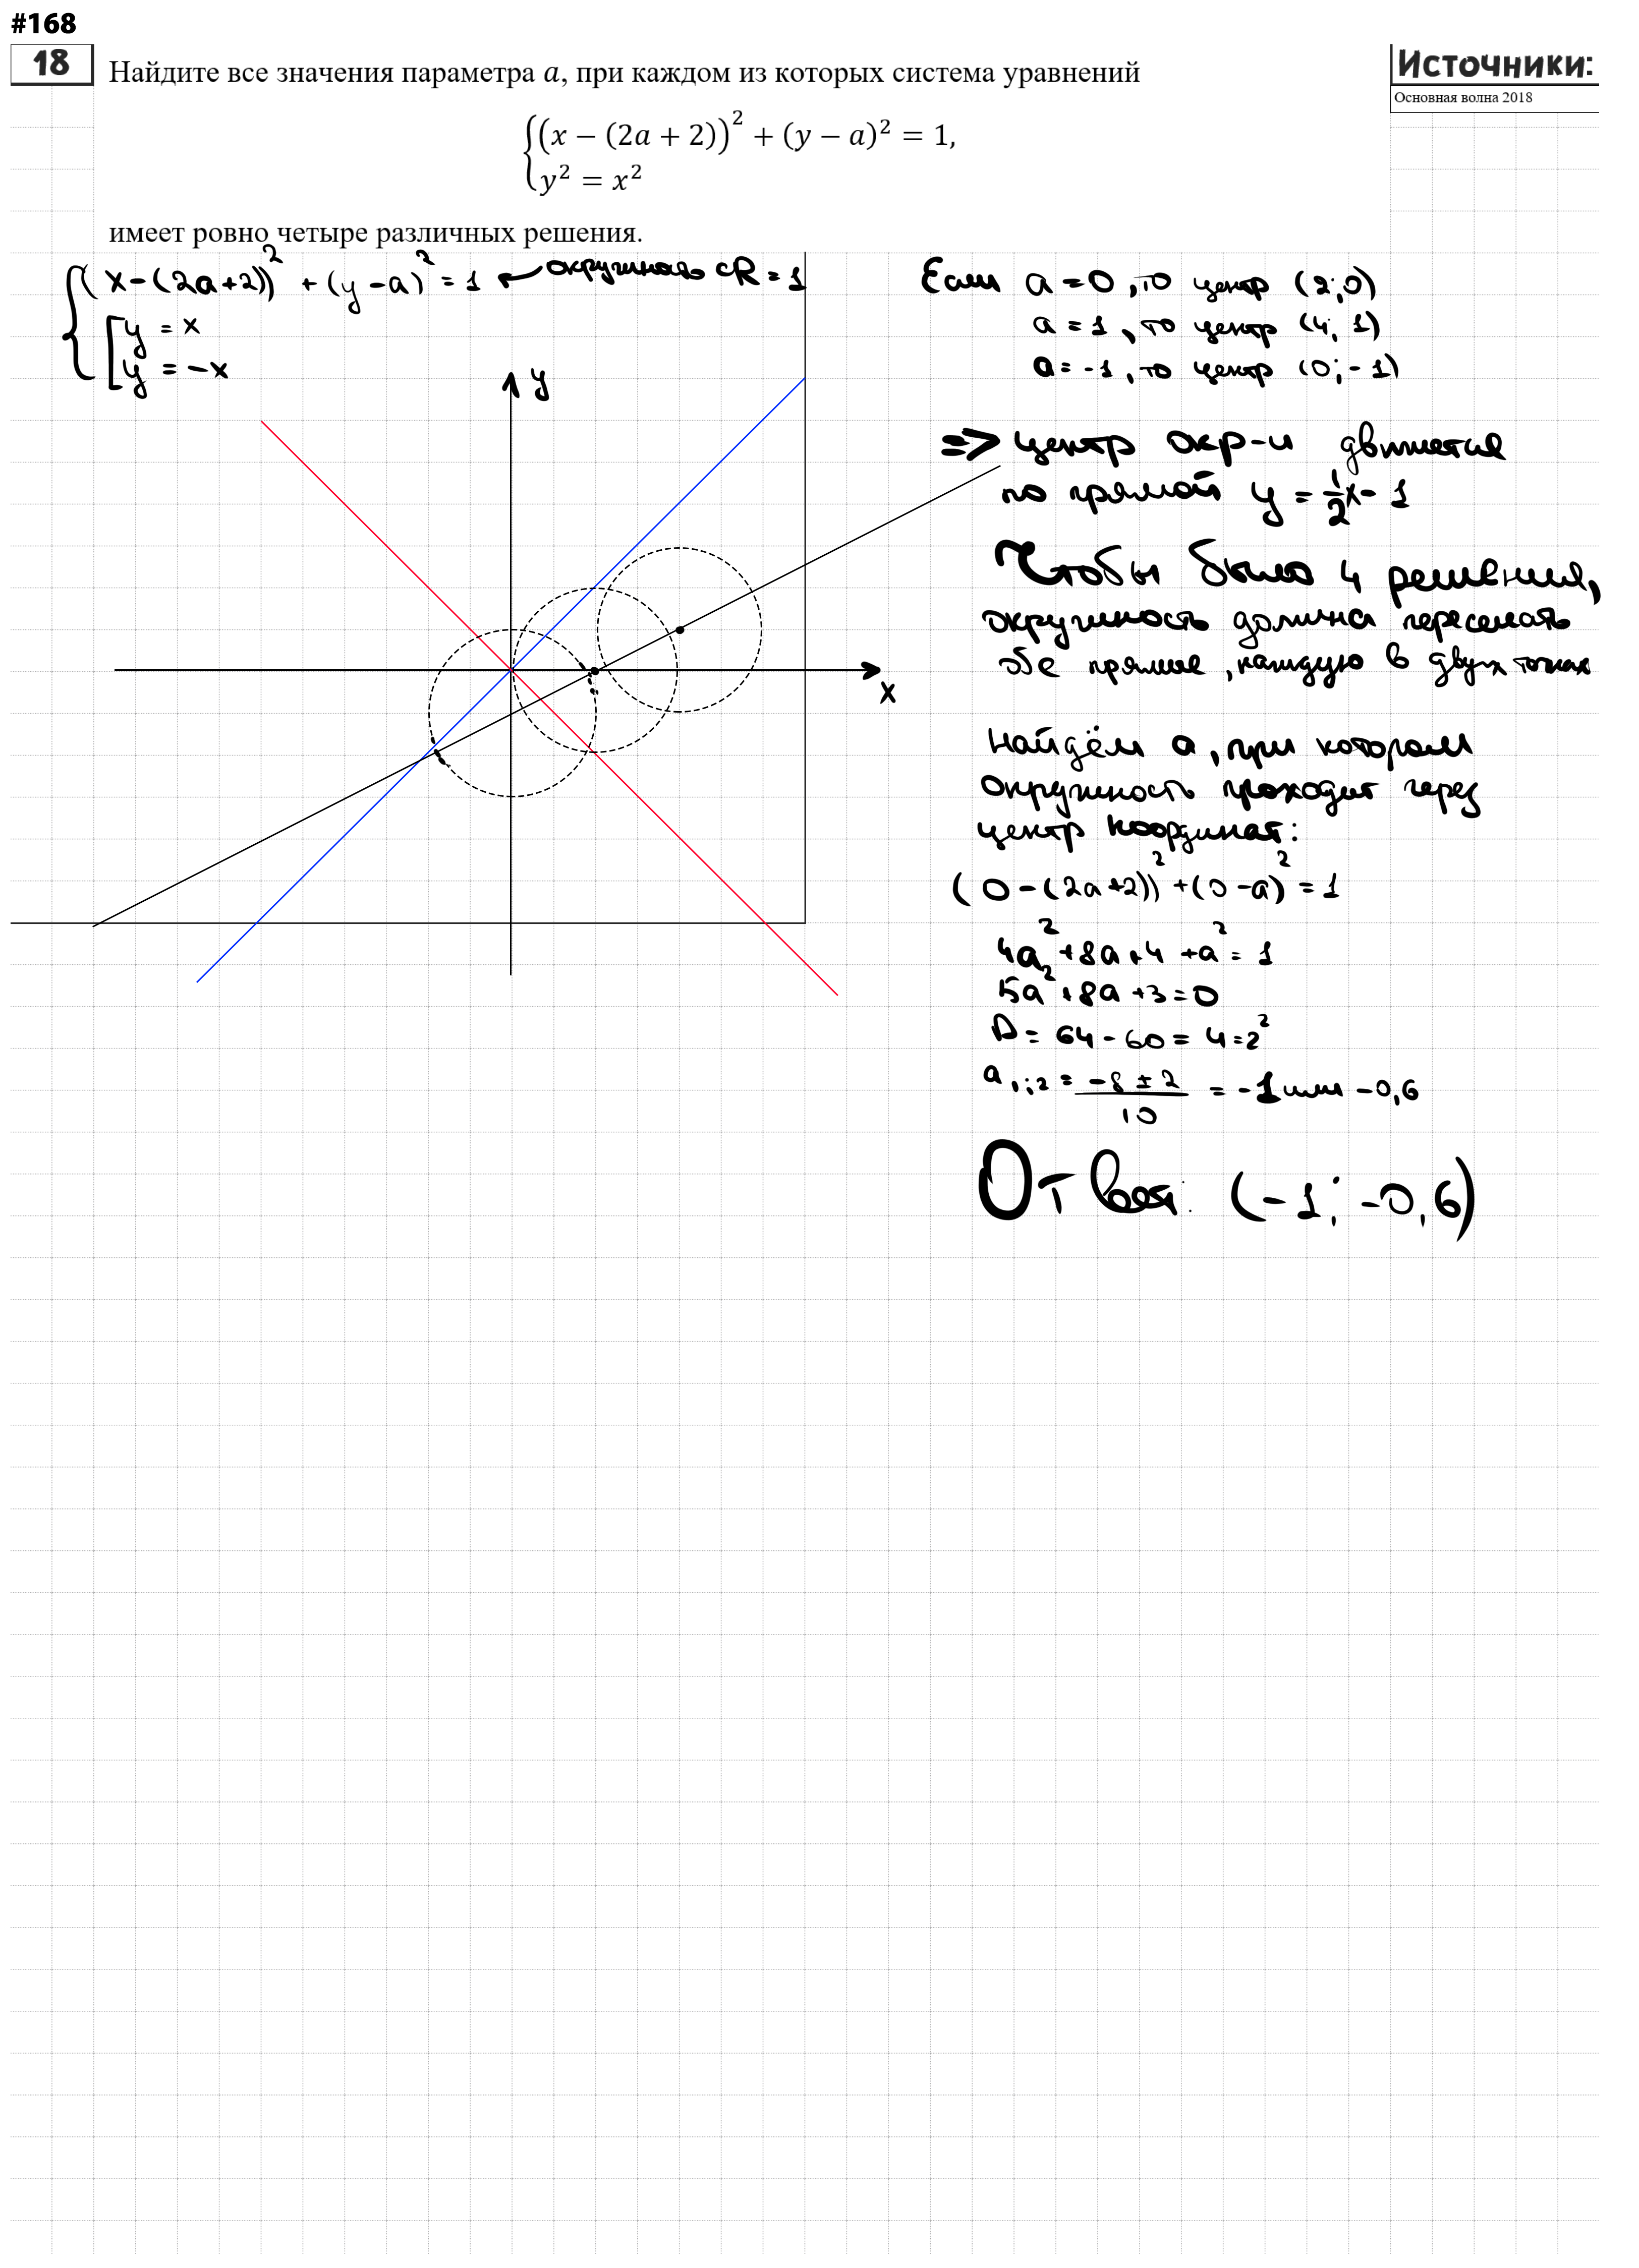 #168
18
Найдите все значения параметра a, при каждом из которых система уравнений
Источники:
Основная волна 2018
{(x − (2a + 2))² + (y − a)² = 1,
y² = x²
имеет ровно четыре различных решения.
{(x-(2a+2))² + (y-a)² = 1 ← окружность с R = 1
[y = x
y = -x
y
x
Если a = 0, то центр (2; 0)
a = 1, то центр (4; 1)
a = -1, то центр (0; -1)
=> центр окр-и движется
по прямой y = 1/2 x - 1
Чтобы было 4 решения,
окружность должна пересекать
обе прямые, каждую в двух точках
Найдём a, при котором
окружность проходит через
центр координат:
(0-(2a+2))² + (0-a)² = 1
4a² + 8a + 4 + a² = 1
5a² + 8a + 3 = 0
D = 64 - 60 = 4 = 2²
a₁;₂ = (-8 ± 2)/10 = -1 или -0,6
Ответ: (-1; -0,6)